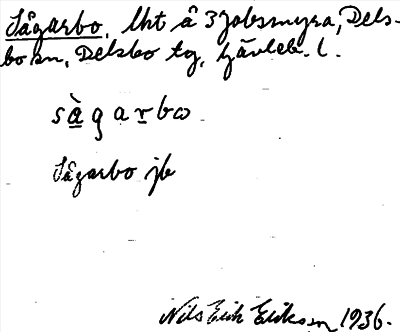 Sågarbo, lht å 3 Jobsmyra, Dels-
bo sn, Delsbo tg, Gävleb. l.
sàgarbo
Sågarbo jb
Nils Erik Erikson 1936.